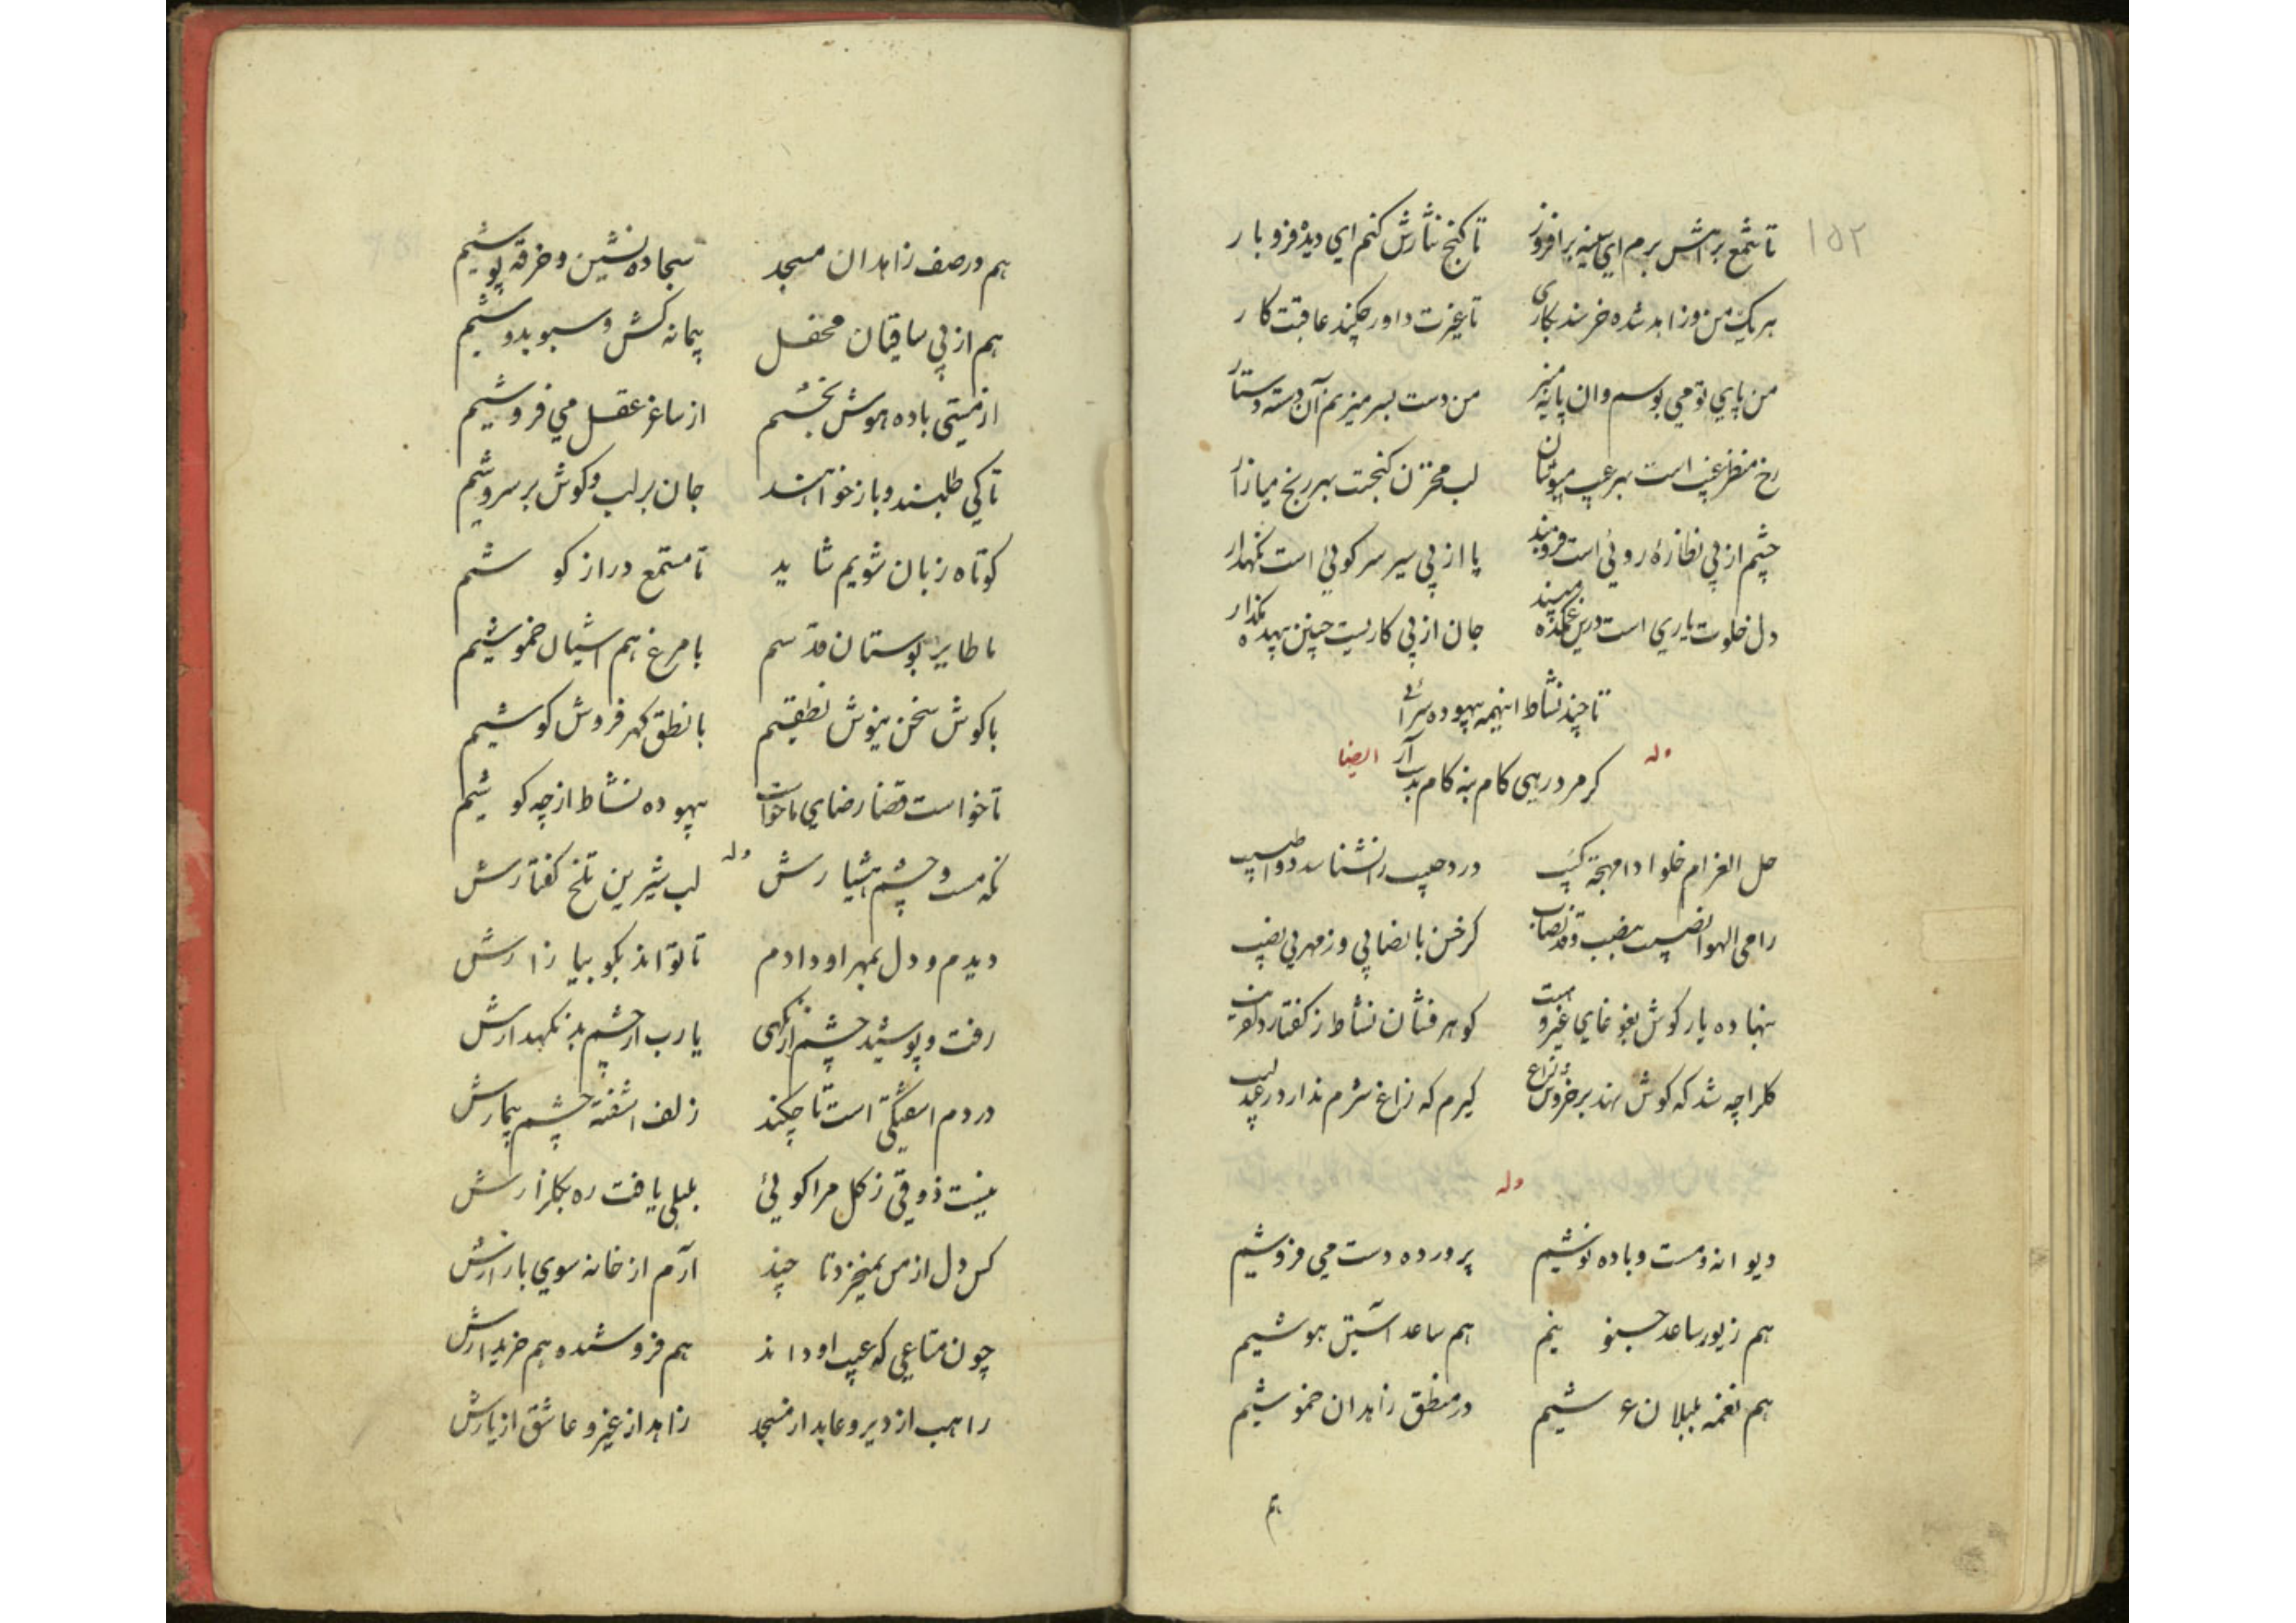 ۱۵۲
تا شمع برهش برم ای سینه برافروز تا کنج نثارش کنم ای دیده فرو بار
هر یک من و زاهد شده خرسند بکاری تا غیرت داور چکند عاقبت کار
من پای تو می بوسم وان پایه منبر من دست بسر میزنم آن دسته دستار
رخ منظر غیب است بهر عیب مپوشان لب مخزن کنجست بهر رنج میازار
چشم از پی نظاره روئی است فرو بند پا از پی سیر سر کوئی است نکهدار
دل خلوت یاری است درین غمکده مپسند جان از پی کاریست چنین بیهده مکذار
تا چند نشاط اینهمه بیهوده سرائی
کر مرد رهی کام بنه کام بدست آر
وله ایضا
حل الغرام خلوا دا مهجة کئیب درد حبیب را نشناسد دوا طبیب
رامی الهوا نصیب بقلب وقد نصاب کر خسن با نصابی و ز مهر بی نصیب
بنهاده یار کوش بغوغای غیر و هست کوهر فشان نشاط ز کفتار دلفریب
کلرا چه شد که کوش نهد بر خروش زاغ کیرم که زاغ شرم ندارد ز عندلیب
وله
دیوانه و مست و باده نوشیم پرورده دست می فروشیم
هم زیور ساعد جنونیم هم ساعد آستین هوشیم
هم نغمه بلبلان عرشیم در منطق زاهدان خموشیم
هم
هم در صف زاهدان مسجد سجاده نشین و خرقه پوشیم
هم از پی ساقیان محفل پیمانه کش و سبو بدوشیم
از مستی باده هوش بخشیم از ساغر عقل می فروشیم
تا کی طلبند و باز خوانند جان بر لب و کوش بر سروشیم
کوتاه زبان شویم شاید تا مستمع دراز کوشیم
ما طایر بوستان قدسیم با مرغ هم آشیان خموشیم
با کوش سخن نیوش نطقیم با نطق کهر فروش کوشیم
تا خواست قضا رضای ما خواست بیهوده نشاط از چه کوشیم
وله
نکه مست و چشم هشیارش لب شیرین تلخ کفتارش
دیدم و دل بمهر او دادم تا تواند بکو بیازارش
رفت و پوشید چشم از نکهی یا رب از چشم بد نکهدارش
در دم اسفتکی است تا چکند زلف آشفته چشم بیمارش
نیست ذوقی ز کل مرا کوئی بلبلی یافت ره بکلزارش
کس دل از من نمیخرد تا چند آرم از خانه سوی بازارش
چون متاعی که عیب او داند هم فروشنده هم خریدارش
راهب از دیر و عابد از مسجد زاهد از غیر و عاشق از یارش